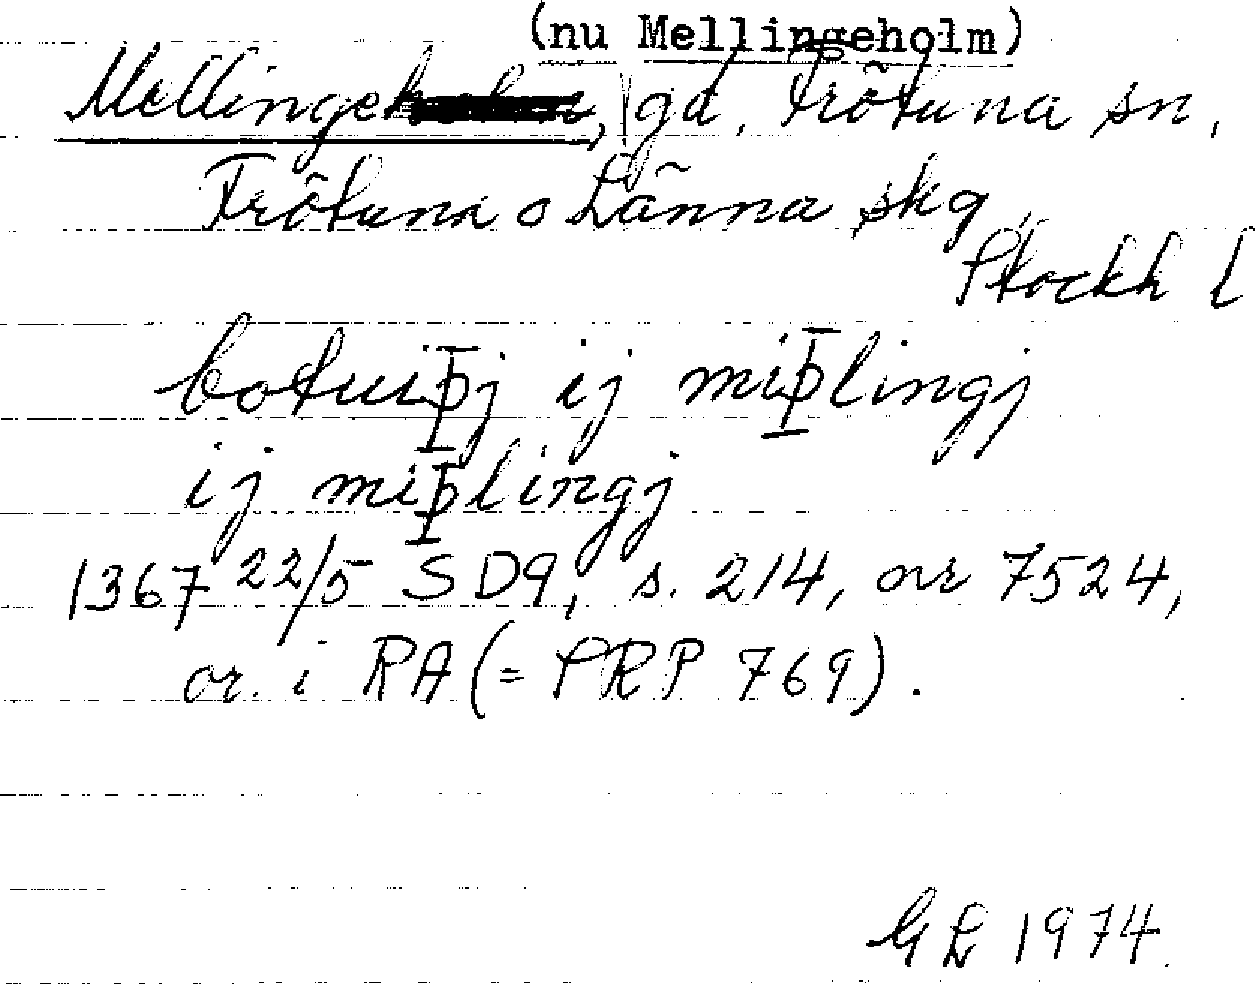 (nu Mellingeholm)
Mellinge, gd, Frötuna sn,
Frötuna o Länna skg,
Stockh l
botuiþj ij miþlingj
ij miþlingj
1367 22/5 SD9, s. 214, nr 7524,
or. i RA (= PRP 769).
GL 1974.